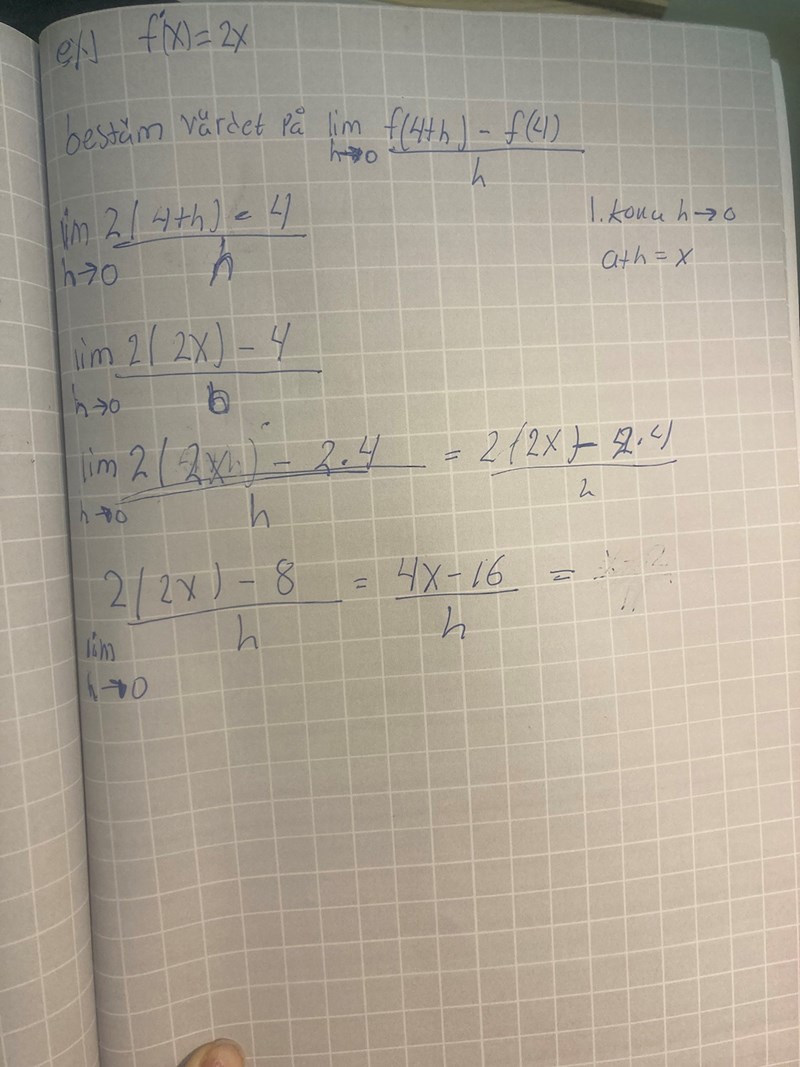 ex1 f'(x) = 2x
bestäm värdet på lim h→0 f(4+h) - f(4) / h
lim h→0 2(4+h) - 4 / h
1. h→0
a+h = x
lim h→0 2(2x) - 4 / h
lim h→0 2(2x) - 2·4 / h = 2(2x) - 2·4 / h
lim h→0 2(2x) - 8 / h = 4x-16 / h =